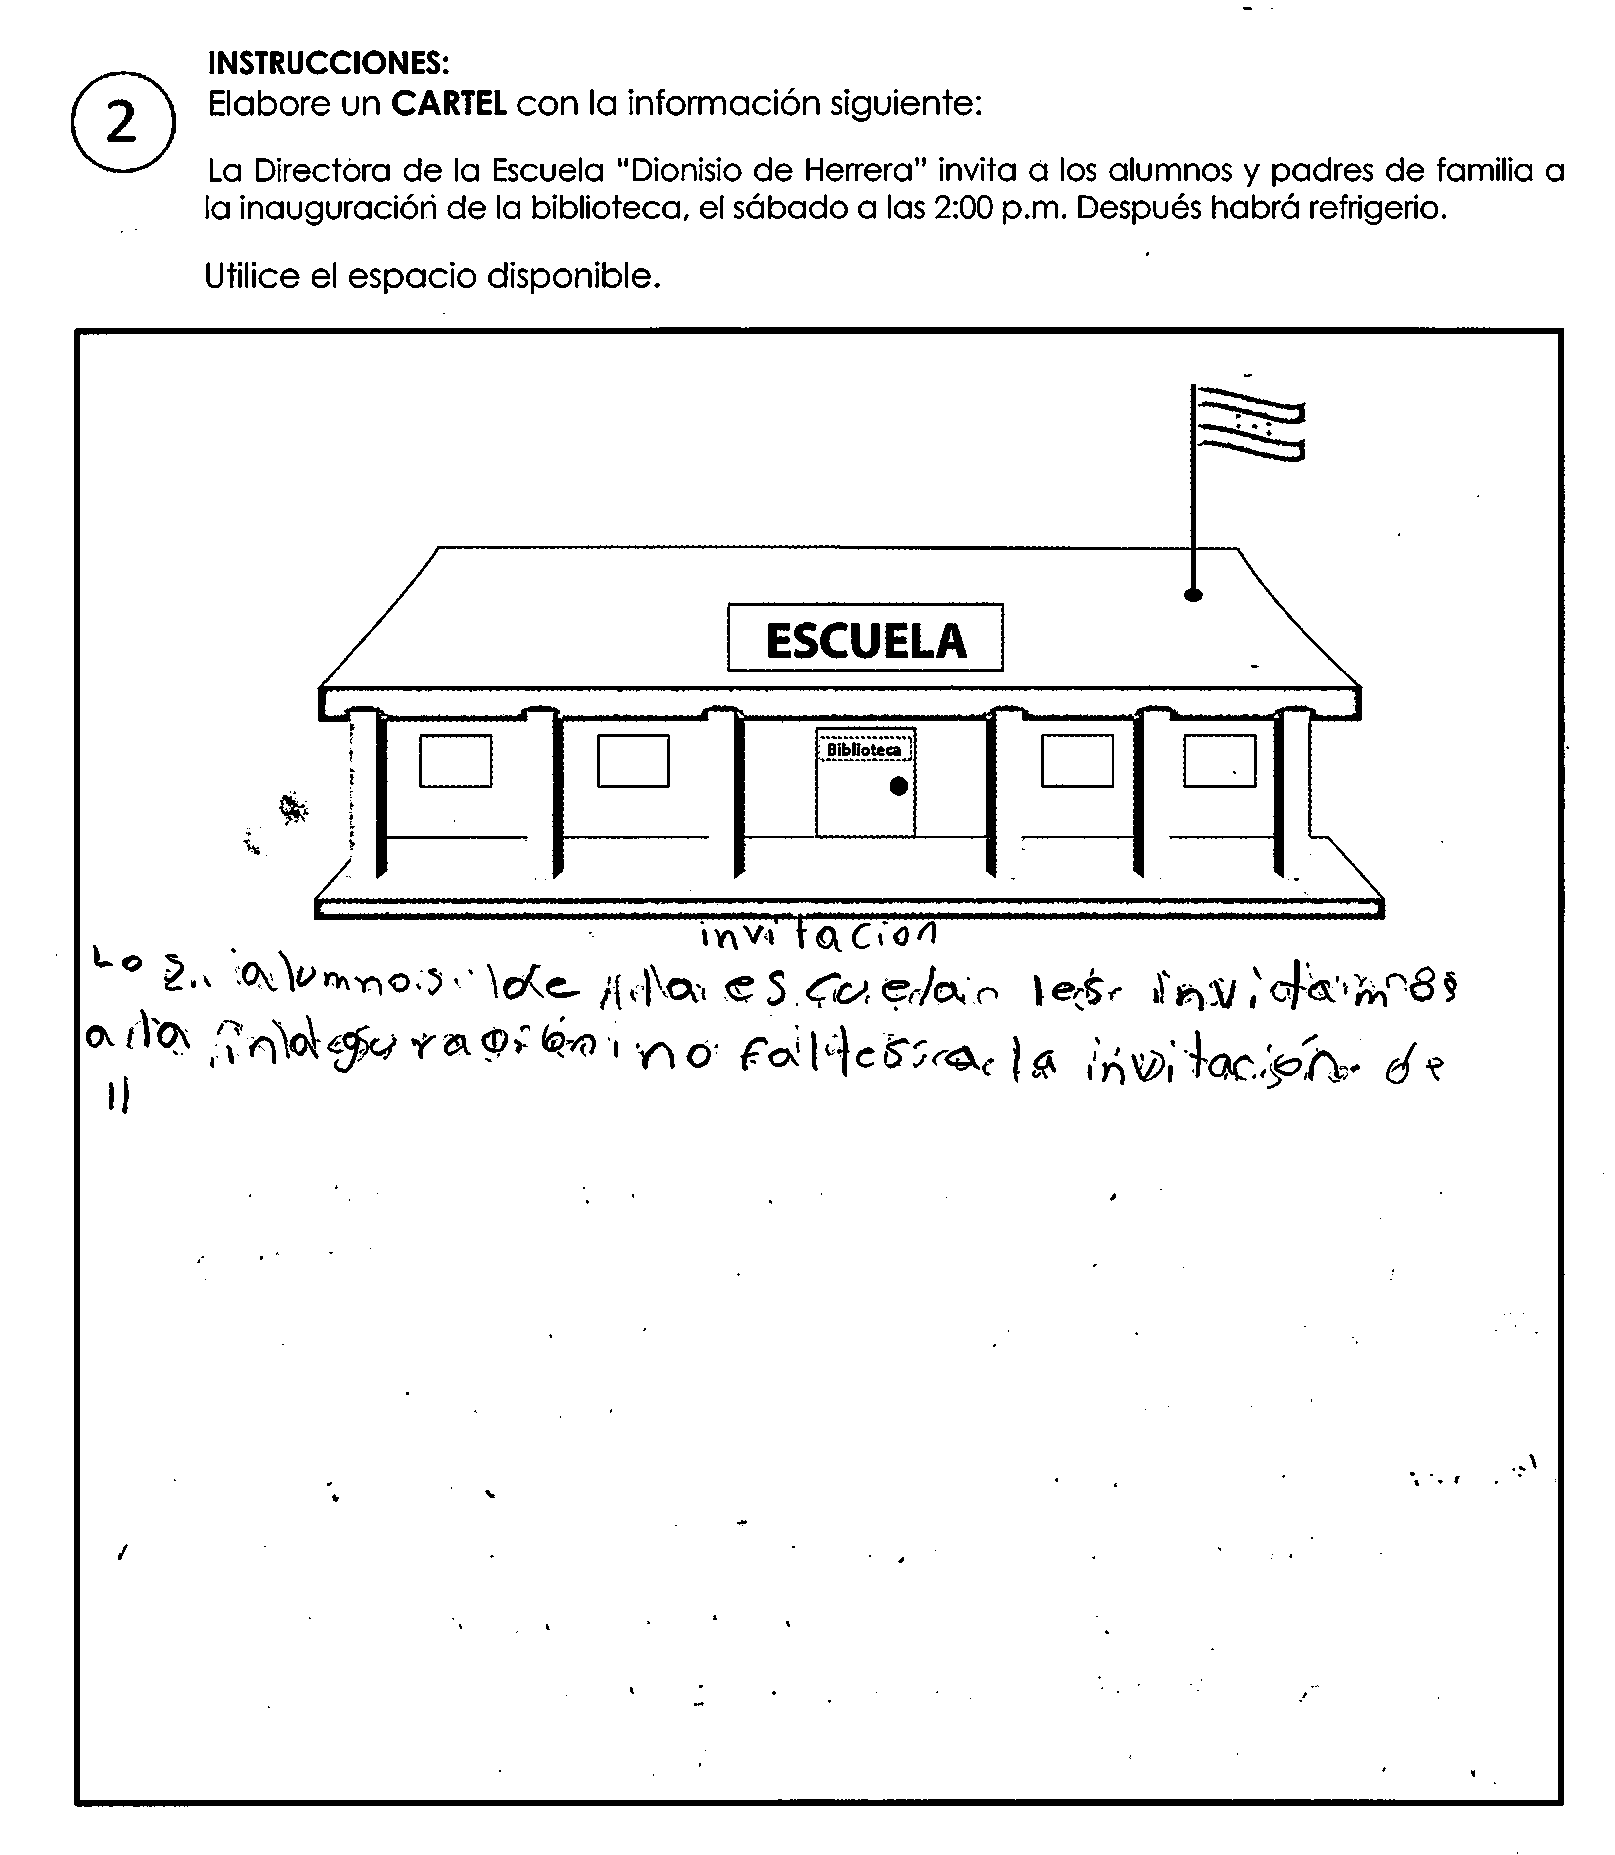 INSTRUCCIONES:
2
Elabore un CARTEL con la información siguiente:
La Directora de la Escuela "Dionisio de Herrera" invita a los alumnos y padres de familia a
la inauguración de la biblioteca, el sábado a las 2:00 p.m. Después habrá refrigerio.
Utilice el espacio disponible.
ESCUELA
Biblioteca
invitacion
Los alumnos de la escuela les invidamos
a la inaguración no faltes a la invitación de
ll